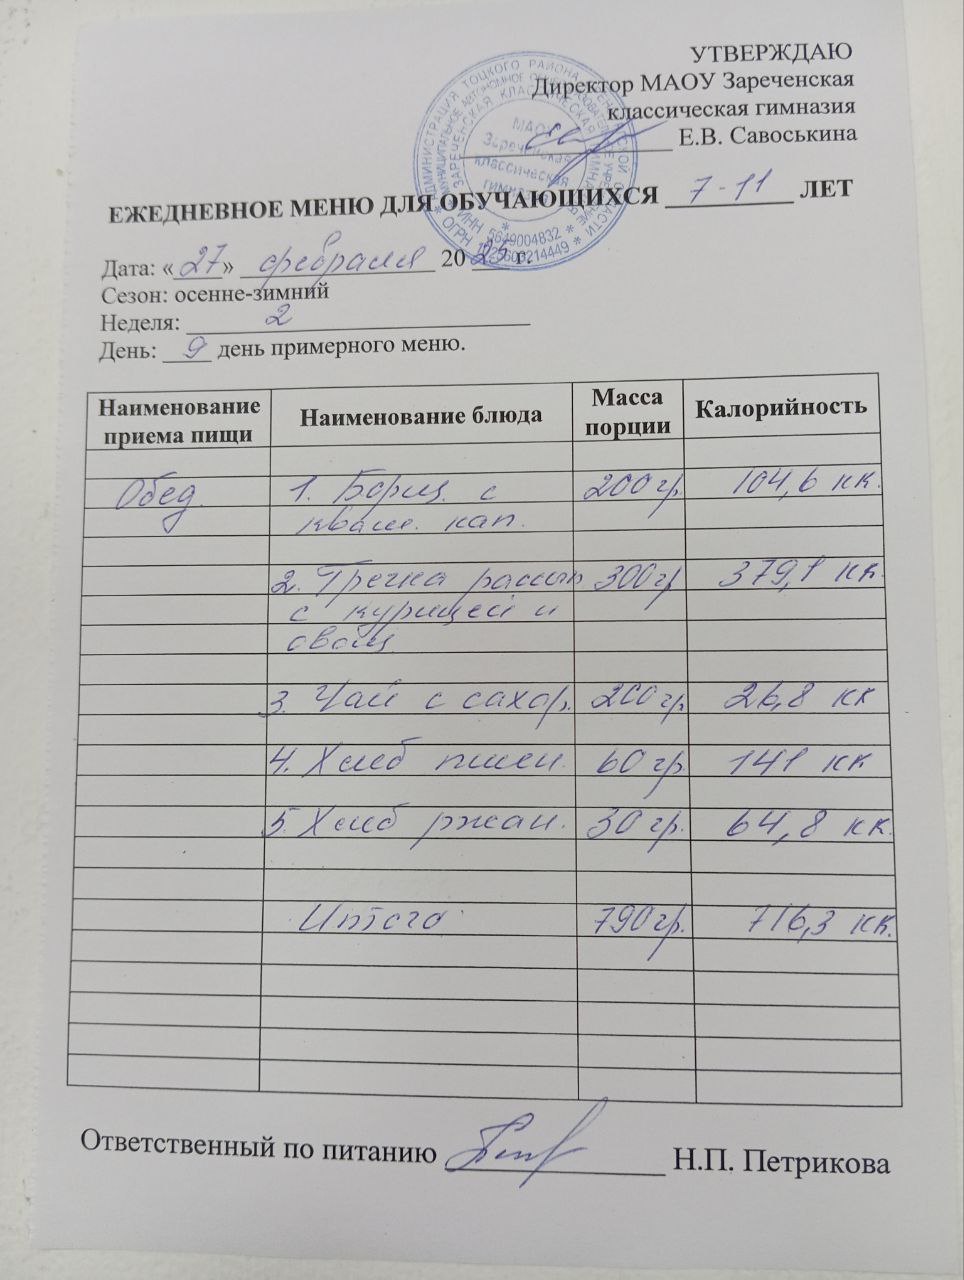 УТВЕРЖДАЮ
Директор МАОУ Зареченская
классическая гимназия
Е.В. Савоськина
МАОУ
Зареченская
классическая
гимназия
ИНН 5649004832
ЕЖЕДНЕВНОЕ МЕНЮ ДЛЯ ОБУЧАЮЩИХСЯ 7-11 ЛЕТ
Дата: «27» февраля 2025 г.
Сезон: осенне-зимний
Неделя: 2
День: 9 день примерного меню.
Наименование приема пищи Наименование блюда Масса порции Калорийность
Обед 1. Борщ с 200 гр. 104,6 кк.
кваш. кап.
2. Гречка рассып 300 гр 379,1 кк.
с курицей и
овощ
3. Чай с сахар. 200 гр. 26,8 кк
4. Хлеб пшен. 60 гр. 141 кк
5. Хлеб ржан. 30 гр. 64,8 кк.
Итого 790 гр. 716,3 кк.
Ответственный по питанию Н.П. Петрикова